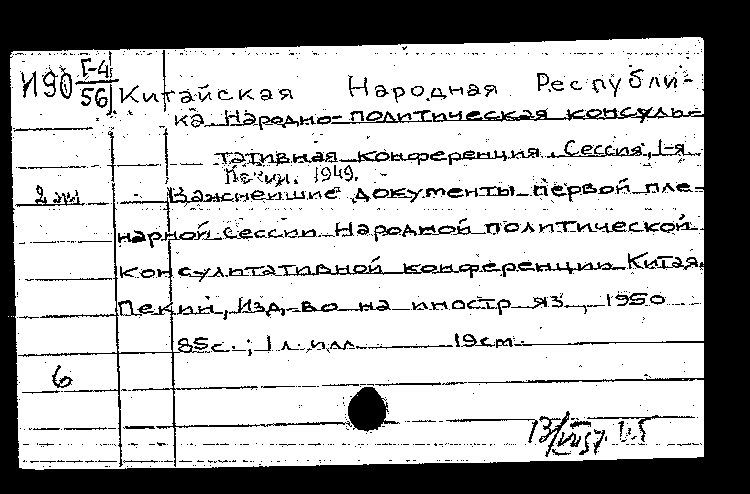 И90 Г-4/56 Китайская Народная Республи-
ка. Народно-политическая консуль-
тативная конференция. Сессия, 1-я
Пекин. 1949.
2 экз Важнейшие документы первой пле-
нарной сессии Народной политической
консультативной конференции Китая.
Пекин, Изд-во на иностр яз., 1950
85с.; 1 л. илл. 19cm.
6
13/VII 57.